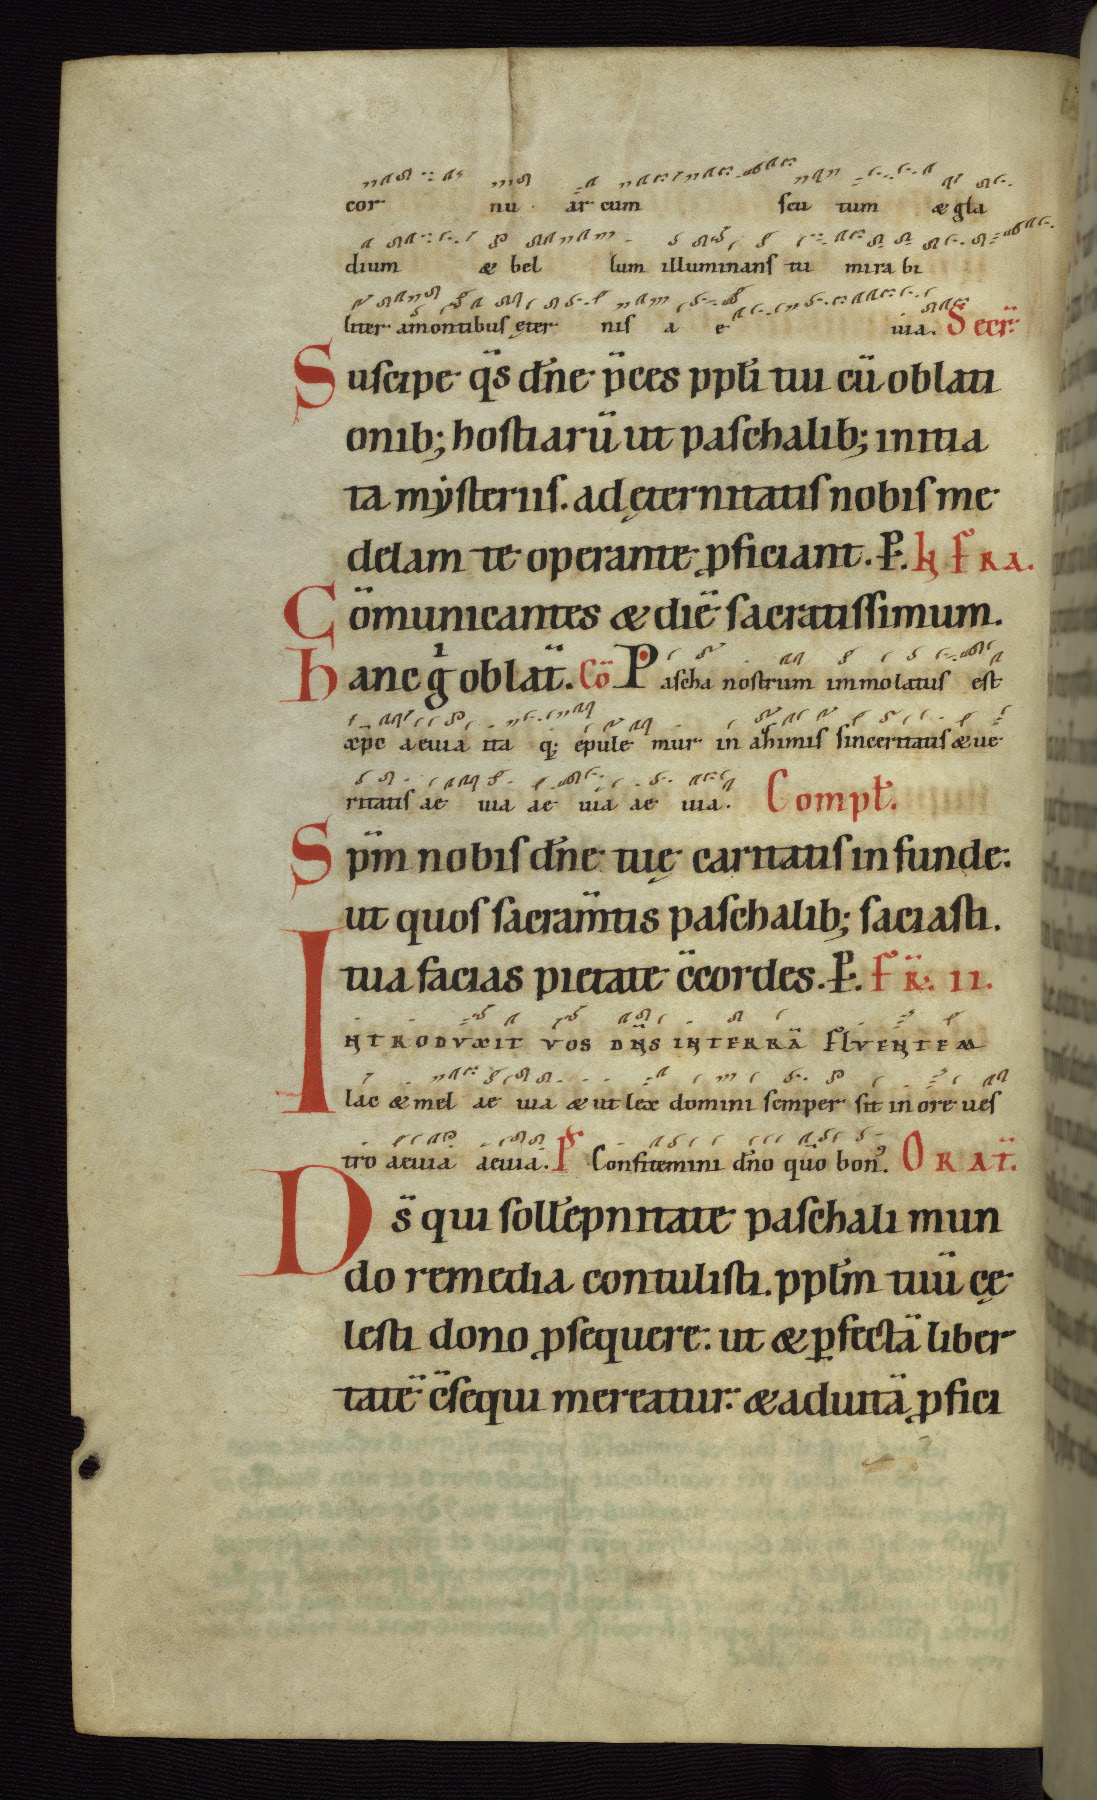 cor nu ar cum scu tum & gla
dium & bel lum illuminans tu mira bi
liter amontibus ęter nis a e uia. Secr̄.
Suscipe q̄s dn̄e p̄ces ppl̄i tui cū oblati
onib; hostiarū ut paschalib; initia
ta mẏsteriis. ad ęternitatis nobis me
delam te operante ꝓficiant. P. Iɴ FRA.
Cōmunicantes & diē sacratissimum.
Hanc gͥ oblat̄. Cō Pascha nostrum immolatus est
xp̄c aeuia ita q; epule mur in azimis sinceritatis & ue
ritatis ae uia ae uia ae uia. Compl̄.
Sp̄m nobis dn̄e tuę caritatis infunde:
ut quos sacram̄tis paschalib; saciasti.
tua facias pietate c̄cordes. P. FR̄. II.
INTRODVXIT VOS DN̄S INTERRĀ FLVENTEM
lac & mel ae uia & ut lex domini semper sit in ore ues
tro aeuia aeuia. Ps Confitemini dn̄o qūo bon᷒. ORAT̄.
Ds̄ qui soll̄epnitate paschali mun
do remedia contulisti. ppl̄m tuū cę
lesti dono ꝓsequere: ut & ꝑfectā liber
tatē c̄sequi mereatur: & aduitā ꝓfici